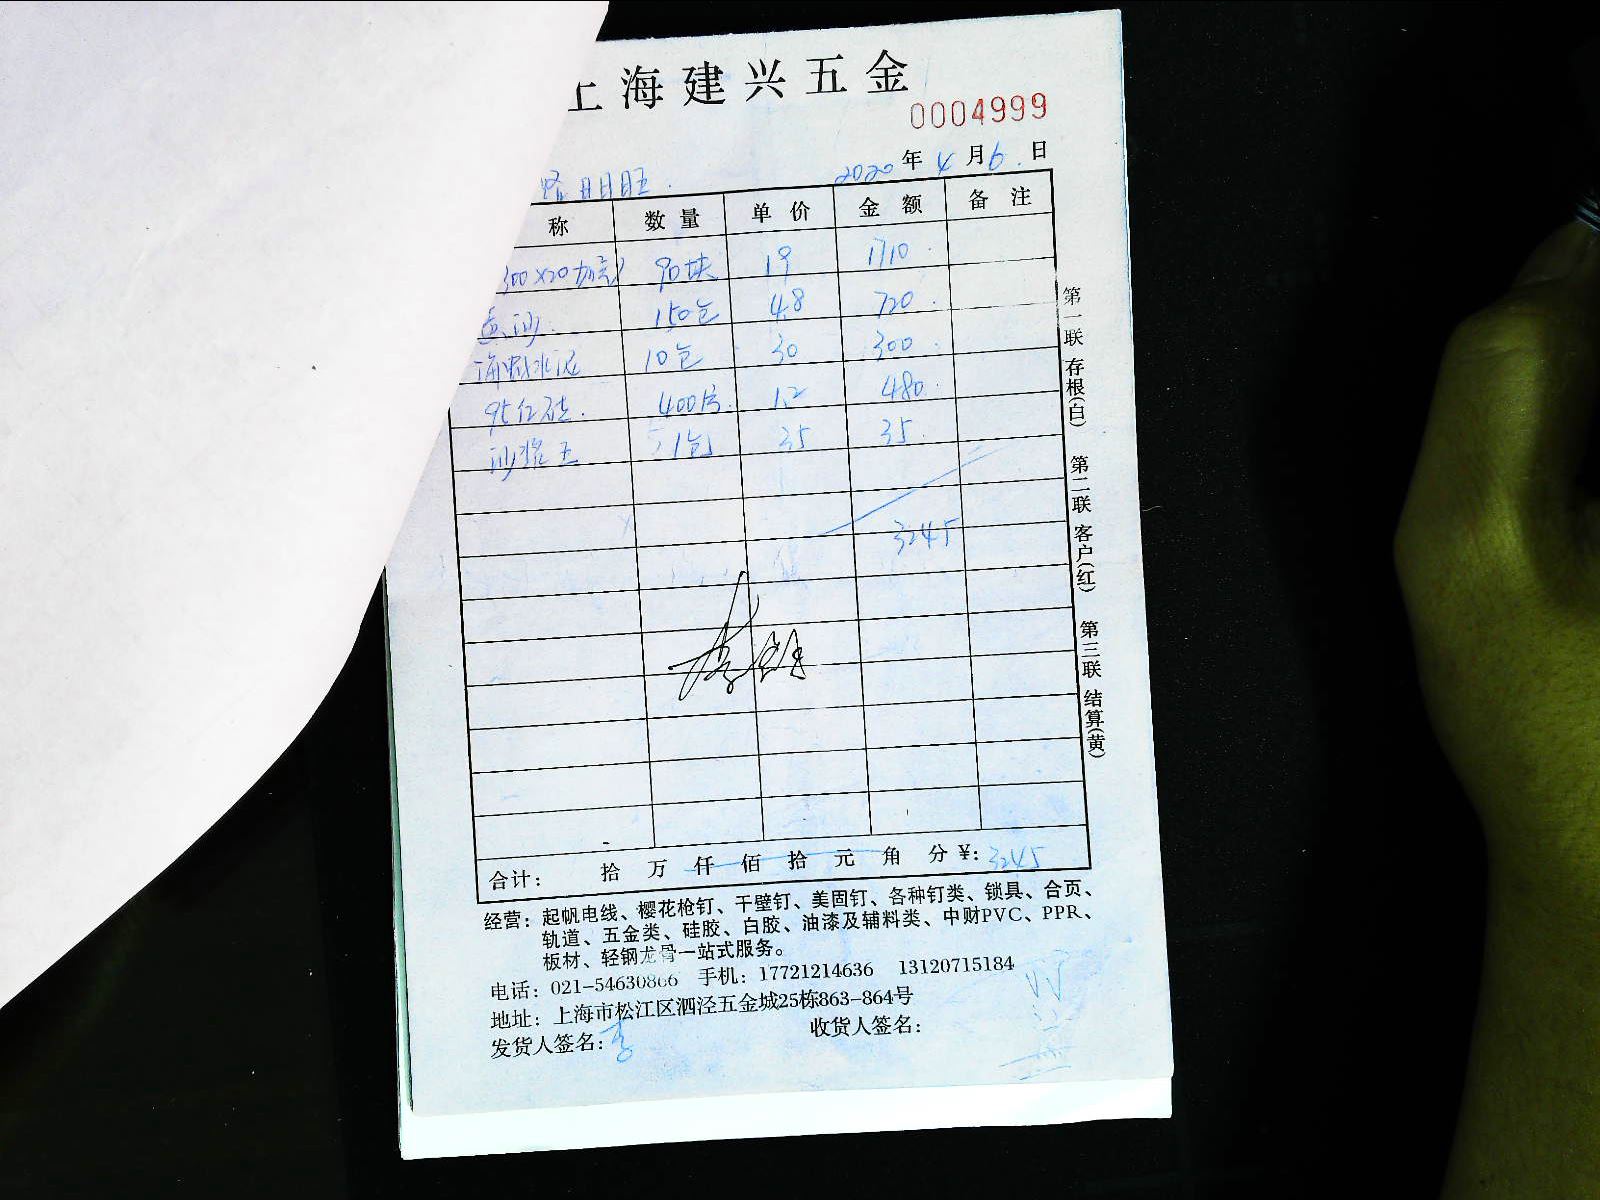 上海建兴五金
0004999
2020年4月6.日
称 数量 单价 金额 备注
300×20加气 90块 19 1710.
黄沙. 150包 4.8 720.
海螺水泥 10包 30 300.
95红砖. 400片. 1.2 480.
沙浆王 1包 35 35.
3245
合计: 拾 万 仟 佰 拾 元 角 分 ¥:3245
经营:起帆电线、樱花枪钉、干壁钉、美固钉、各种钉类、锁具、合页、
轨道、五金类、硅胶、白胶、油漆及辅料类、中财PVC、PPR、
板材、轻钢龙骨一站式服务。
电话:021-54630866 手机:17721214636 13120715184
地址:上海市松江区泗泾五金城25栋863-864号
发货人签名:李 收货人签名:
第一联 存根(白) 第二联 客户(红) 第三联 结算(黄)